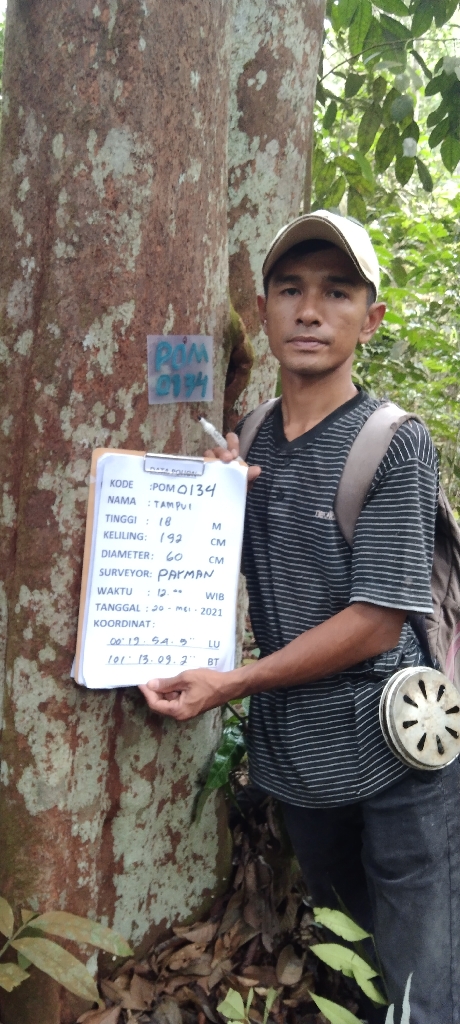 POM
0134
DATA POHON
KODE : POM 0134
NAMA : TAMPUI
TINGGI : 18 M
KELILING: 192 CM
DIAMETER: 60 CM
SURVEYOR: PAYMAN
WAKTU : 12.00 WIB
TANGGAL : 20 - MEI - 2021
KOORDINAT :
00° 19. 54. 9" LU
101° 13. 09. 2" BT